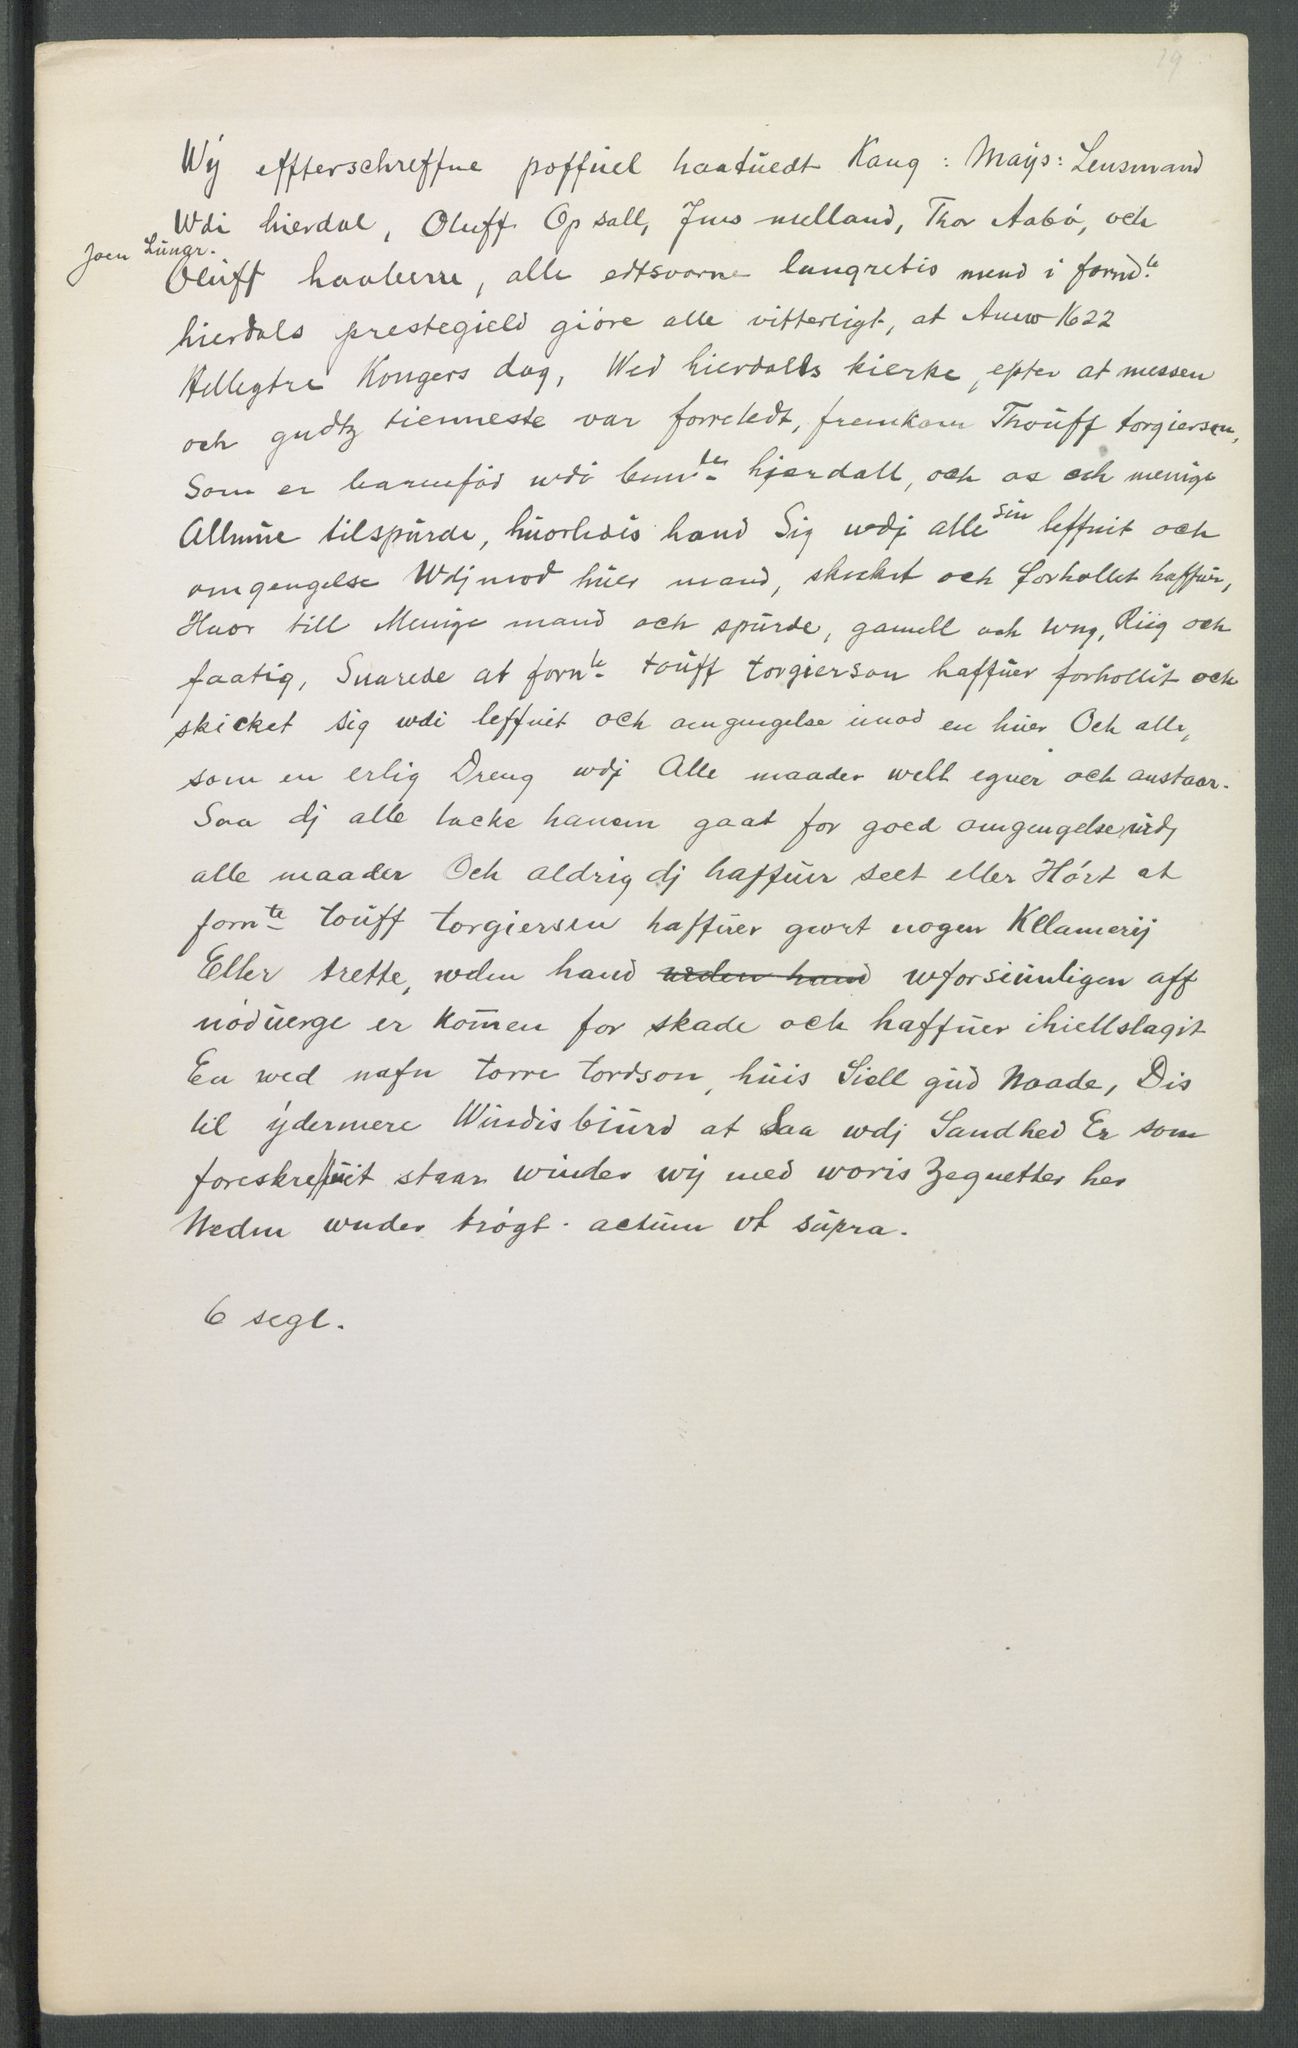 19
Wÿ effterschreffne poffuel haatuedt Kang: Mays: Lensmand
Wdi hierdal, Oluff Opsall, Jens melland, Thor Aabö, och
Joen Lungr.
Oluff haaberre, alle edtsvorne laugretis mend i fornd te
hierdals prestegield giöre alle vitterligt, at Anno 1622
Hellegtre Kongers dag, Wed hierdalls kierke, epter at messen
och gudtz tienneste var forretedt, fremkom Thouff torgiersen,
Som er barnefód wdi bem de hjerdall, och os och menige
Allmue tilspurde, huorledis hand Sig wdj alle sin leffnit och
omgengelse Wdj mod huer mand, skicket och forhollet haffuer,
Huor till Menige mand och spurde, gamell och wng, Riig och
faatig, Suarede at forn te touff torgierson haffuer forhollit och
skicket sig wdi leffnit och omgengelse imod en huer Och alle,
som en erlig Dreng wdj Alle maader well egner och anstaar.
Saa dj alle tacke hanem gaat for goed omgengelse udj
alle maader Och aldrig dj haffuer seet eller Hört at
forn te touff torgiersen haffuer giort nogen Kllamerij
Eller trette, wden hand wden hand wforsiunligen aff
nöduerge er komen for skade och haffuer ihiellslagit
En wed nafn torre tordson, huis Siell gud Naade, Dis
til ÿdermere Windisbiurd at Saa wdj Sandhed Er som
foreskreffuit staar winder wij med woris Zegnetter her
Neden wnder trögt. actum vt supra.
6 segl.